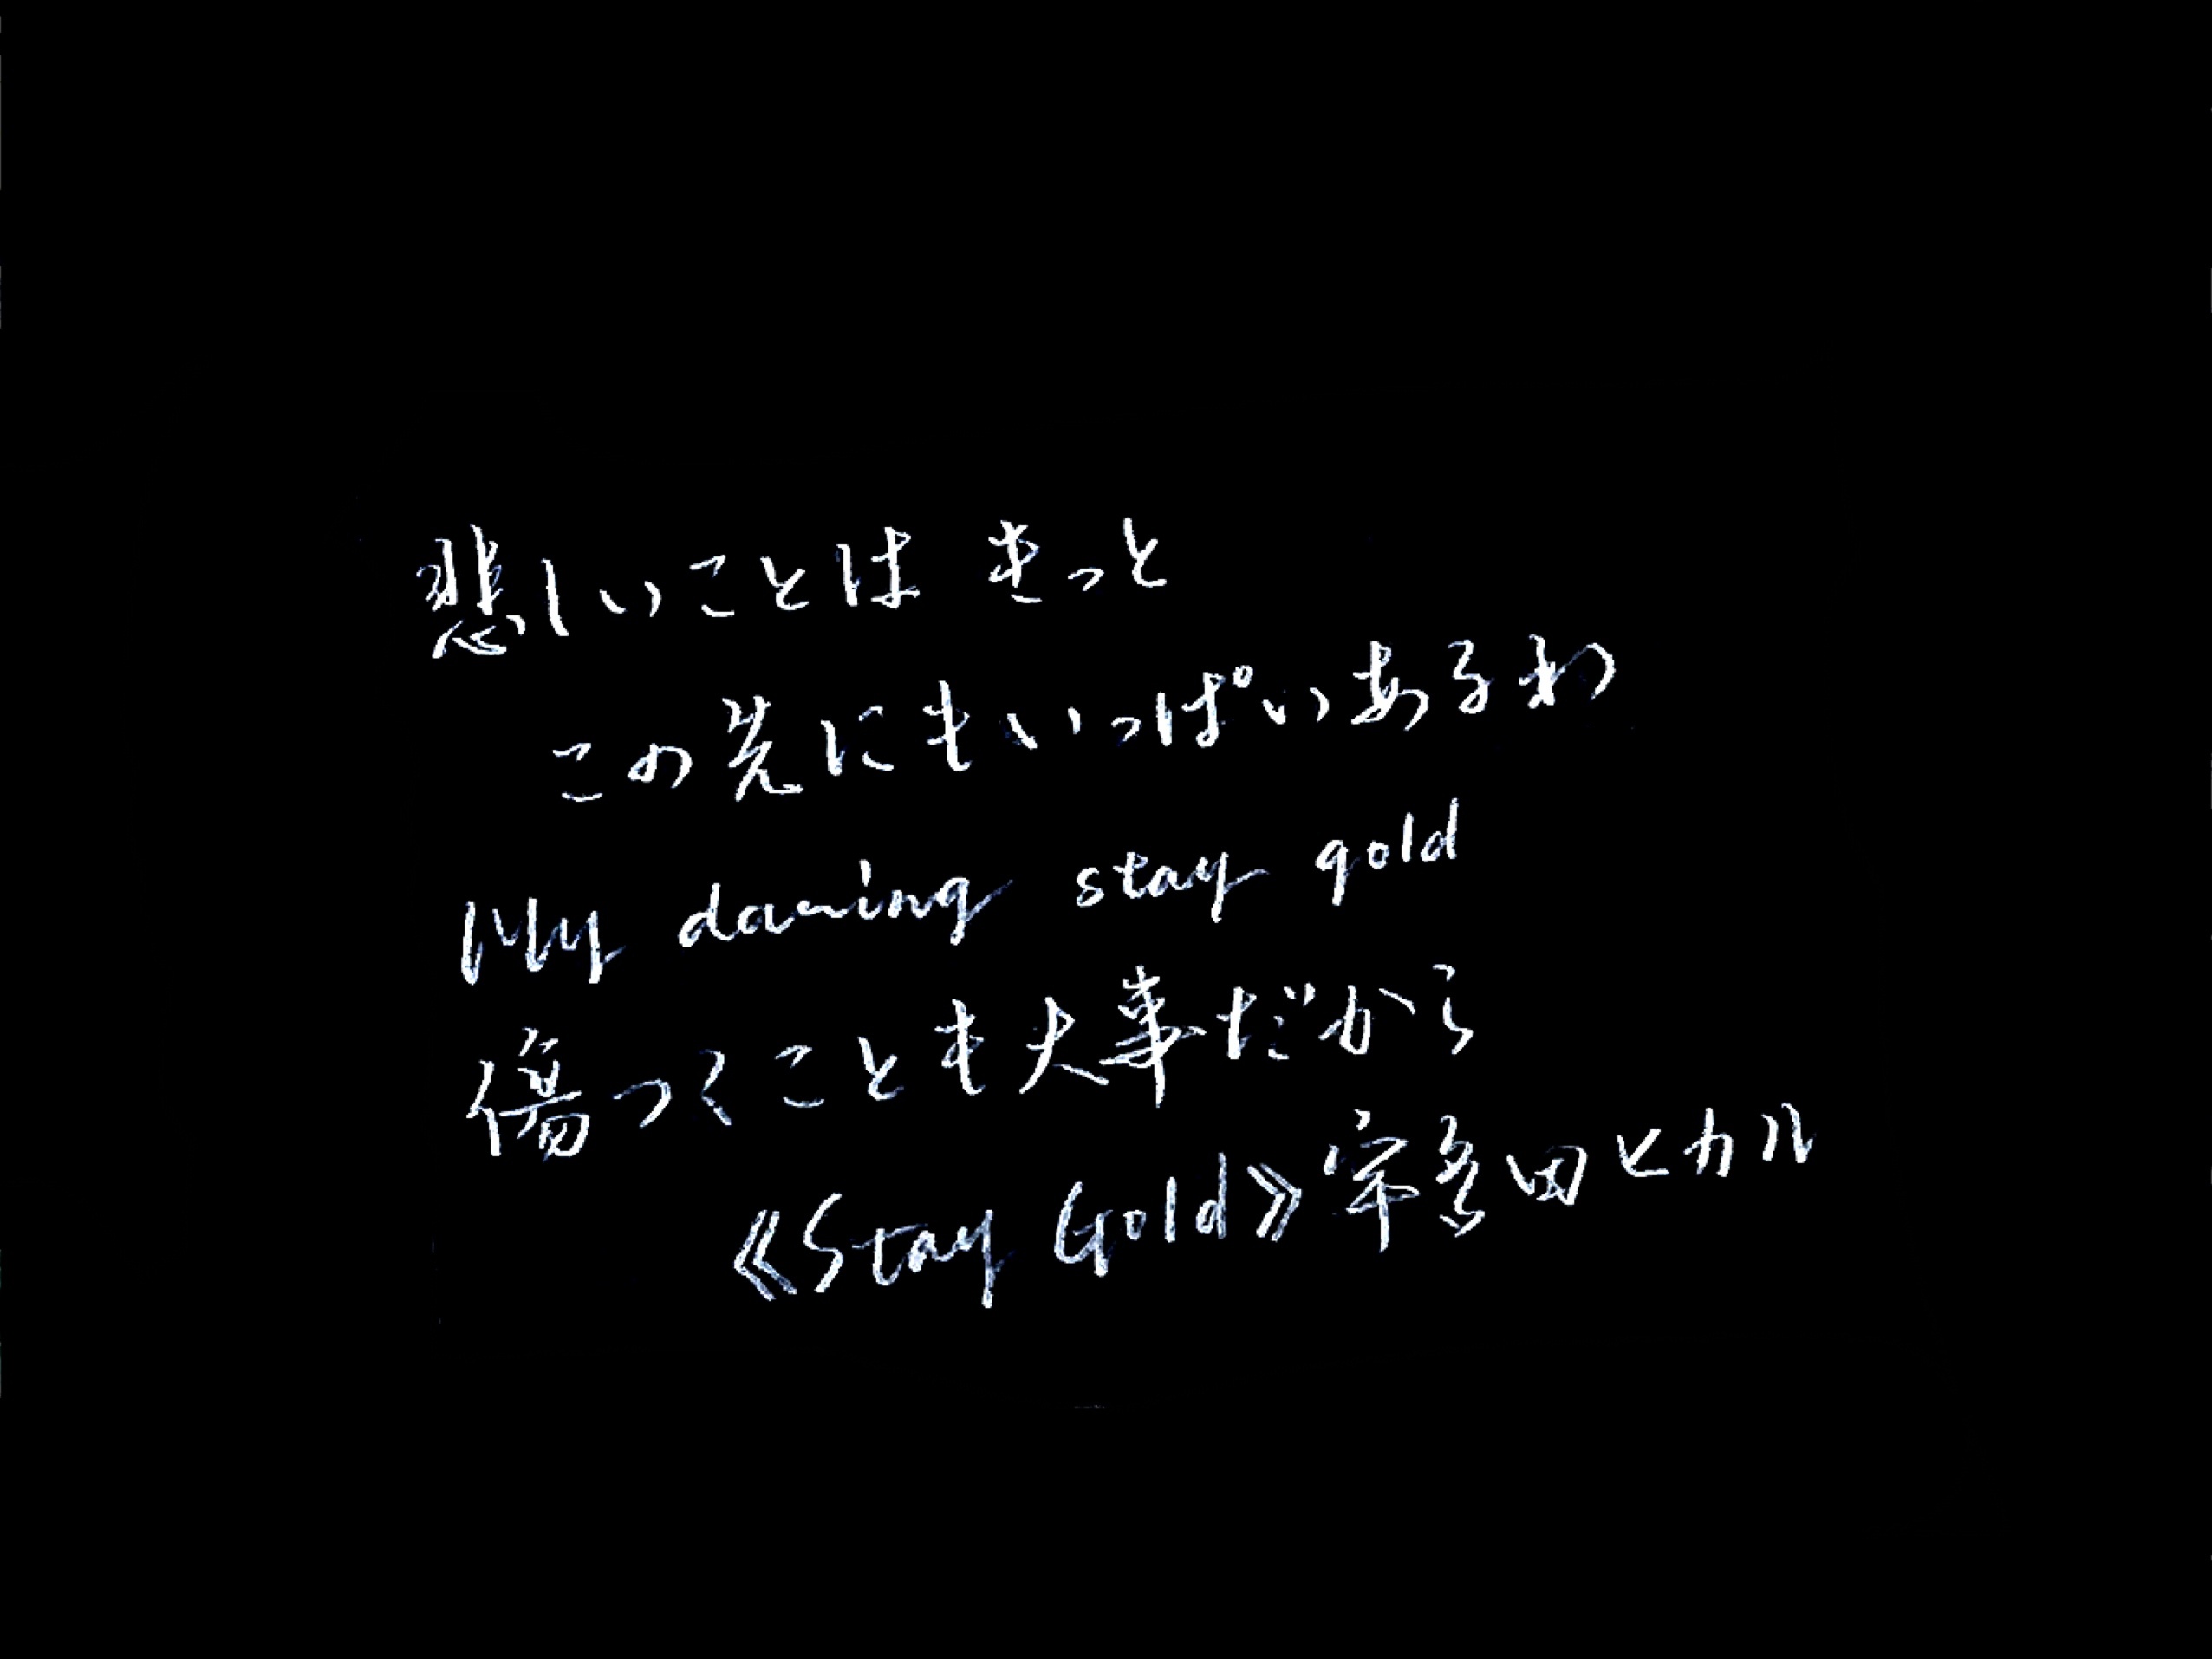 悲しいことは きっと
この先にもいっぱいあるわ
My daring stay gold
傷つくことも大事だから
《Stay Gold》宇多田ヒカル